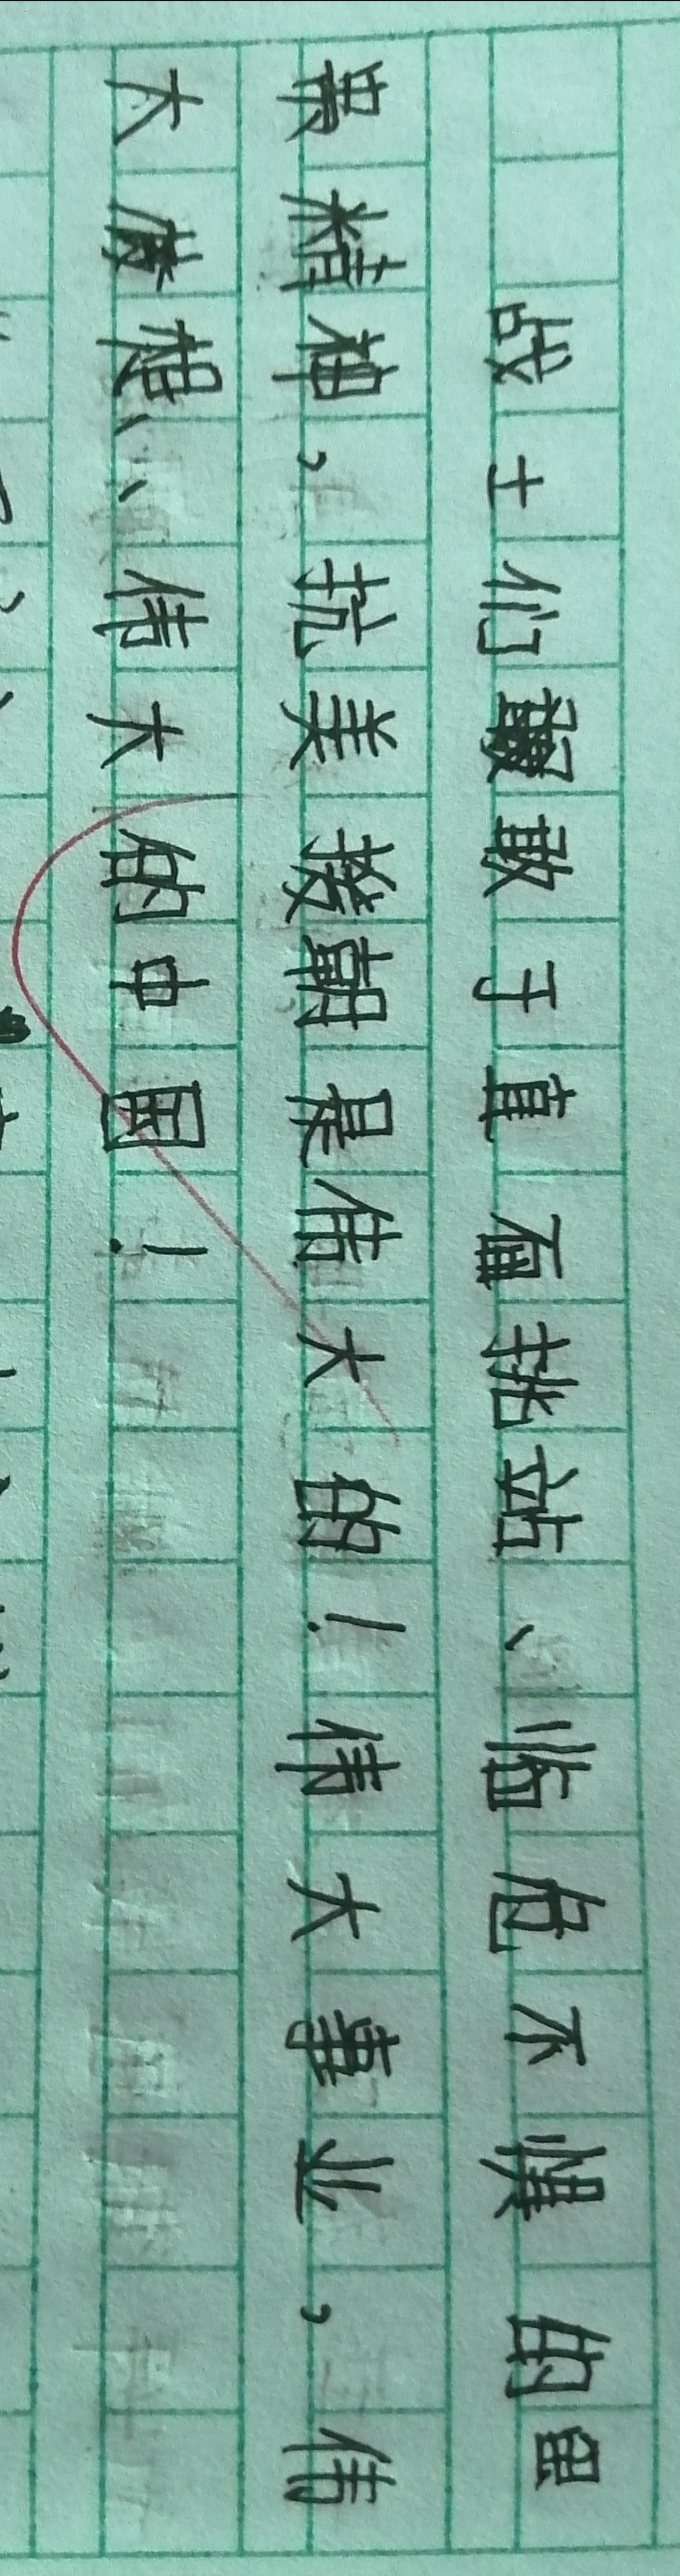 战士们敢于直面站、临危不惧的
精神，抗美援朝是伟大的！伟大事业，伟
大想、伟大的中国！